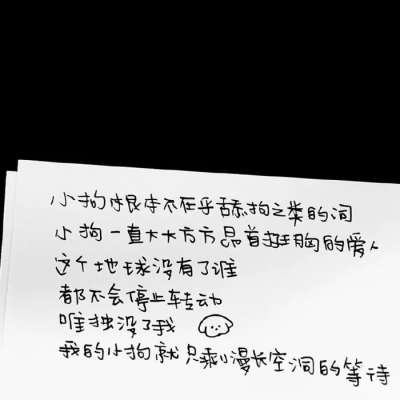 小狗根本不在乎舔狗之类的词
小狗一直大大方方昂首挺胸的爱人
这个地球没有了谁
都不会停止转动
唯独没了我
我的小狗就只剩漫长空洞的等待